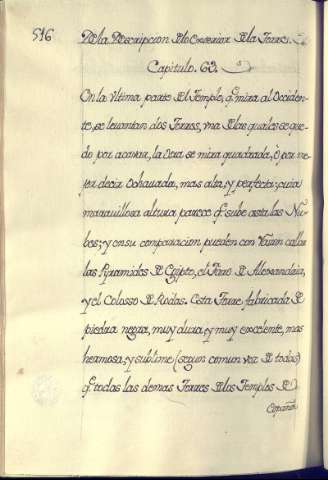 516
De la Descripcion de lo Exterior de la Torre.
Capitulo. 63.
En la Vltima parte del Templo, q̃ mira al Occiden-
te, se levantan dos Torres, vna de las quales se que-
do por acavar, la otra se mira quadrada, ò por me-
jor decir Ochauada, mas alta, y perfecta; cuia
marauillosa altura parece q̃ sube asta las Nu-
bes; y en su comparacion pueden con razon callar
las Pyramides de Egipto, el Faro de Alexandria,
y el Colosso de Rodas. Esta Torre fabricada de
piedra negra, muy dura, y muy excelente, mas
hermosa, y sublime (segun comun voz de todos)
q̃ todas las demas Torres de los Templos de
Españ